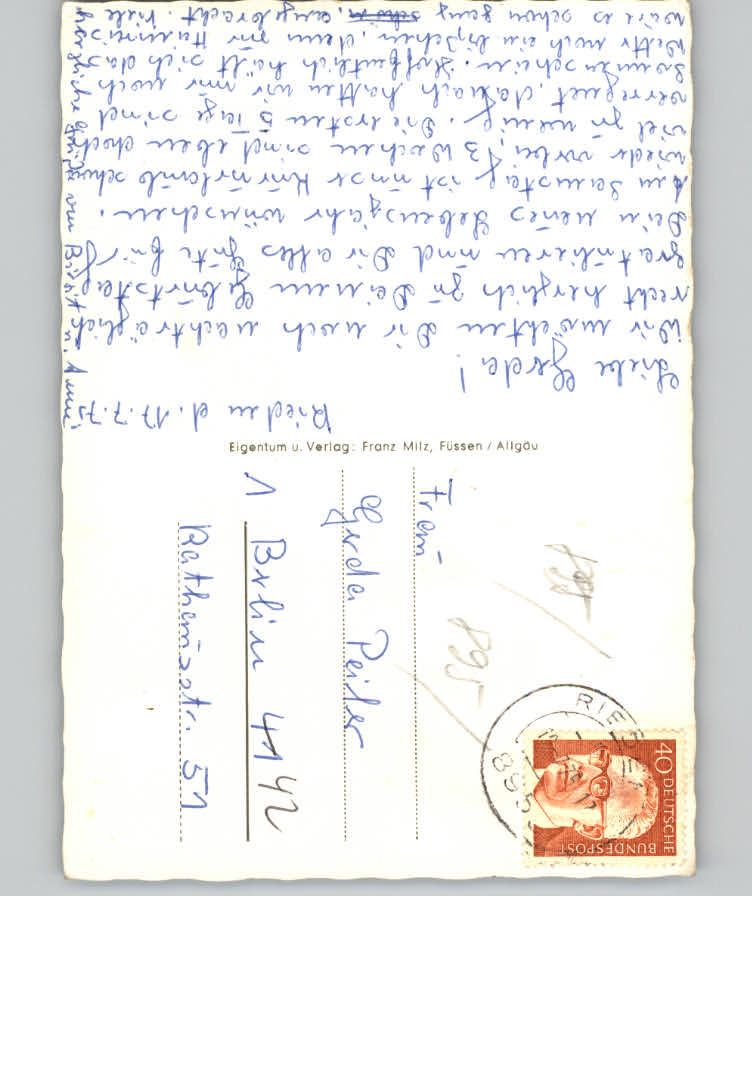 Rieden d. 17.7.75
Liebe Gerda!
Wir möchten Dir noch nachträglich
recht herzlich zu Deinem Geburtstag
gratulieren und Dir alles Gute für
Dein neues Lebensjahr wünschen.
Am Samstag ist unser Kurlaub schon
wieder vorbei, 3 Wochen sind eben doch
viel zu wenig. Die ersten 5 Tage sind
verregnet, danach hatten wir nur noch
Sonnenschein. Hoffentlich hält sich das
Wetter noch ein bißchen, denn zu Hause
wäre es schon ganz angebracht. Viele
herzliche Grüße von Birgit u.
Eigentum u. Verlag: Franz Milz, Füssen / Allgäu
Frau
Gerda Peiler
1 Berlin 41 42
Rathausstr. 51
895
895
RIEDEN
895
40 DEUTSCHE
BUNDESPOST